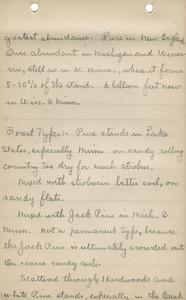 greatest abundance. Rare in New England
Once abundant in Michigan and Wiscon-
sin, still so in N. Minn., where it forms
5-70% of the stand. 6 billion feet now
in Wis. & Minn.
Forest Types:- Pure stands in Lake
States, especially Minn. on sandy rolling
country too dry for much strobus.
Mixed with strobus on better soil, on
sandy flats.
Mixed with Jack Pine in Mich. &
Minn. Not a permanent type, because
the Jack Pine is ultimately crowded out
On coarse sandy soils.
Scattered through Hardwoods and
white Pine stands, especially in the East